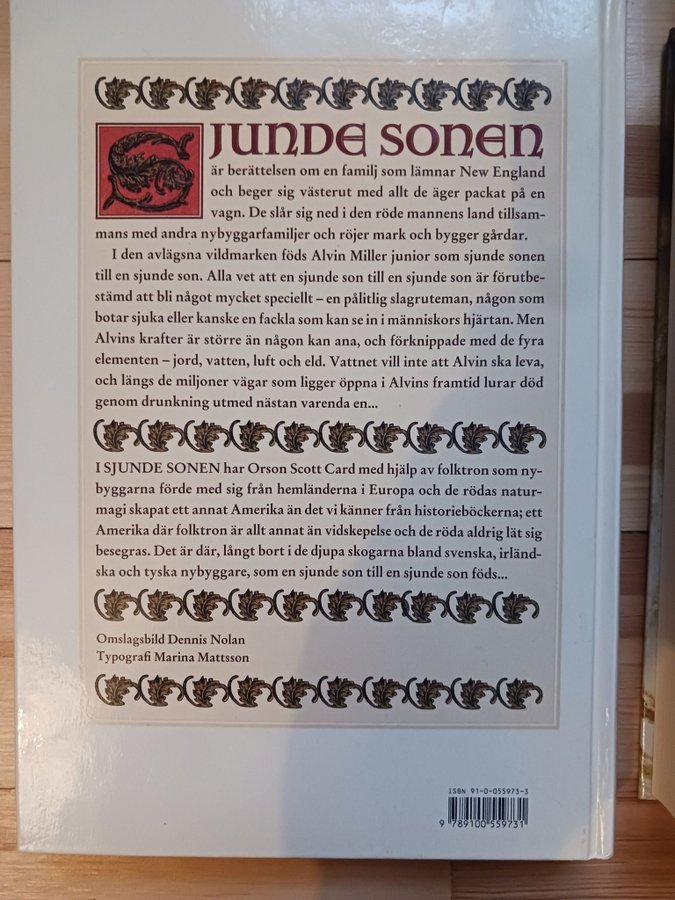 SJUNDE SONEN
är berättelsen om en familj som lämnar New England
och beger sig västerut med allt de äger packat på en
vagn. De slår sig ned i den röde mannens land tillsam-
mans med andra nybyggarfamiljer och röjer mark och bygger gårdar.
I den avlägsna vildmarken föds Alvin Miller junior som sjunde sonen
till en sjunde son. Alla vet att en sjunde son till en sjunde son är förutbe-
stämd att bli något mycket speciellt – en pålitlig slagruteman, någon som
botar sjuka eller kanske en fackla som kan se in i människors hjärtan. Men
Alvins krafter är större än någon kan ana, och förknippade med de fyra
elementen – jord, vatten, luft och eld. Vattnet vill inte att Alvin ska leva,
och längs de miljoner vägar som ligger öppna i Alvins framtid lurar död
genom drunkning utmed nästan varenda en...
I SJUNDE SONEN har Orson Scott Card med hjälp av folktron som ny-
byggarna förde med sig från hemländerna i Europa och de rödas natur-
magi skapat ett annat Amerika än det vi känner från historieböckerna; ett
Amerika där folktron är allt annat än vidskepelse och de röda aldrig lät sig
besegras. Det är där, långt bort i de djupa skogarna bland svenska, irländ-
ska och tyska nybyggare, som en sjunde son till en sjunde son föds...
Omslagsbild Dennis Nolan
Typografi Marina Mattsson
ISBN 91-0-055973-3
9 789100 559731